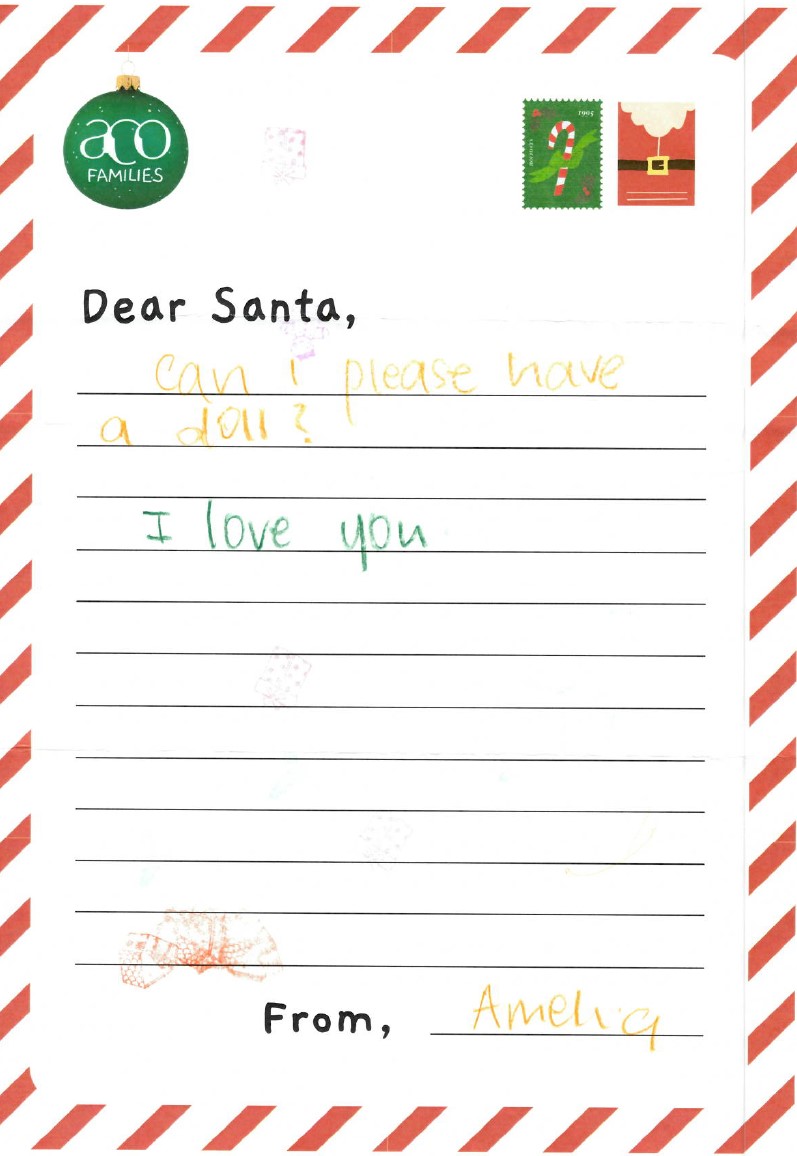 aco
FAMILIES
1995
Dear Santa,
can i please have
a doll?
I love you
From, Amelia